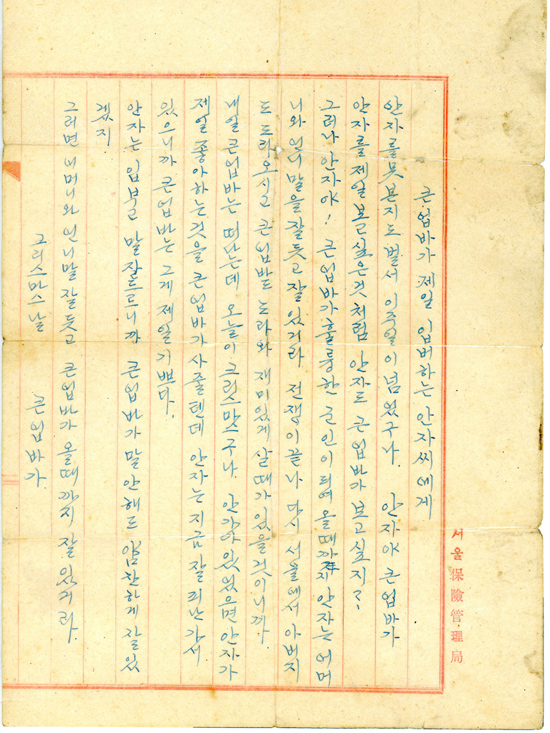 큰 업바가 제일 입버하는 안자씨에게
안자를 못본지도 벌서 이주일이 넘었구나. 안자야 큰 업바가
안자를 제일 보고싶은것 처럼 안자도 큰 업바가 보고싶지?
그러나 안자야! 큰 업바가 훌륭한 군인이 되여 올때까지 안자는 어머
니와 언니 말을 잘 듯고 잘 있거라 전쟁이 끝나 다시 서울에서 아버지
도 도라오시고 큰 업바도 도라와 재미있게 살 때가 있을것이니까.
내일 큰 업바는 떠나는데 오늘이 크리스맛구나. 안자가 있었으면 안자가
제일 좋아하는것을 큰 업바가 사줄텐데 안자는 지금 잘 피난가서
있으니까 큰 업바는 그게 제일 기쁘다.
안자는 입부고 말 잘드르니까 큰 업바가 말 안해도 얌잔하게 잘 있
겠지
그러면 어머니와 언니말 잘 듯고 큰 업바가 올때 까지 잘 있거라.
크리스마스날 큰 업바가.
서울保險管理局